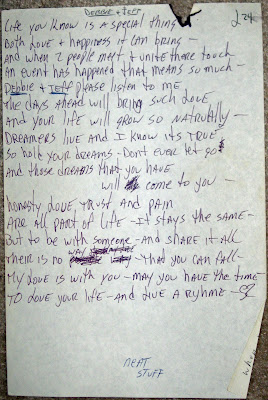 Debbie & Jeff
Life you know is a special thing
Both love & happiness it can bring -
And when 2 people meet & unite there touch
An event has happened that means so much -
Debbie & Jeff please listen to me
The days ahead will bring such love
And your life will grow so natrually -
Dreamers live and I know its true
So hold your dreams - Dont ever let go
And those dreams that you have
will come to you -
honesty love trust and pain
Are all part of life - it stays the same -
But to be with someone - and share it all
Their is no - that you can fall -
My love is with you - may you have the time
To love your life - and live a ryhme -
neat
stuff